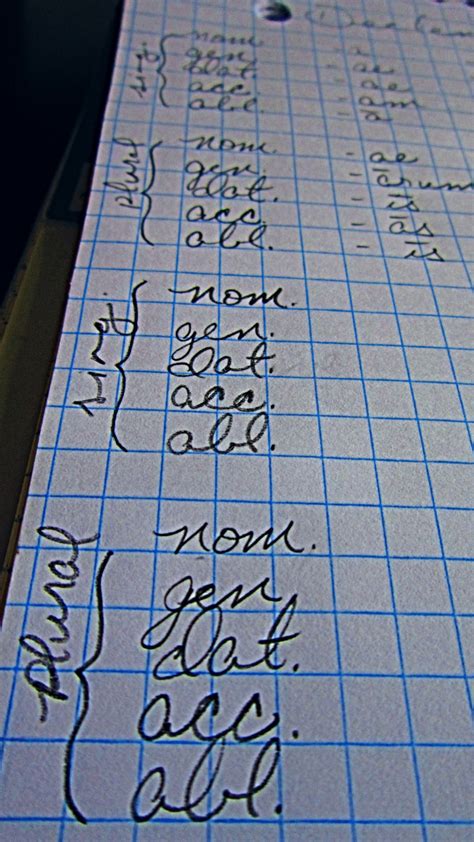 nom. - a
sing. gen. - ae
dat. - ae
acc. - am
abl. - ā
nom. - ae
plural gen. - ārum
dat. - īs
acc. - ās
abl. - īs
nom.
sing. gen.
dat.
acc.
abl.
nom.
plural gen.
dat.
acc.
abl.